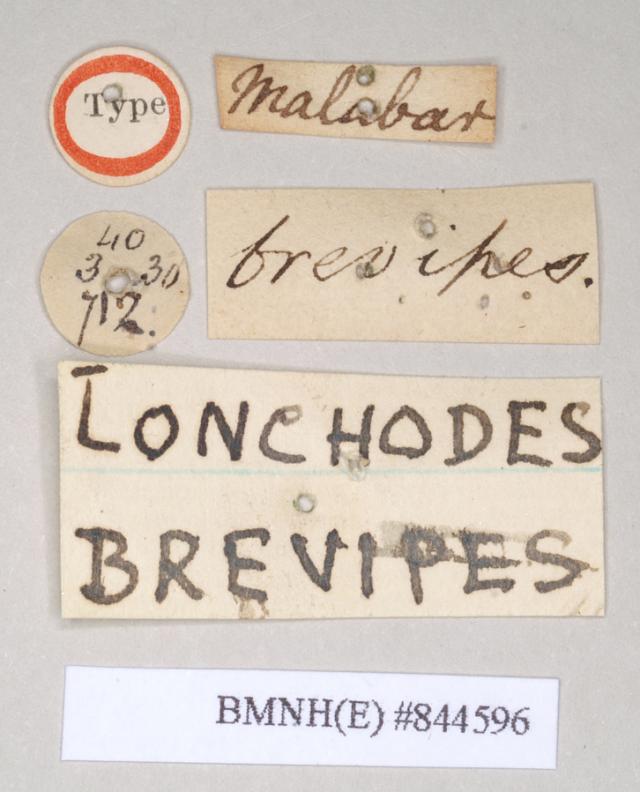 Type
Malabar
40
3 30
712.
brevipes.
LONCHODES
BREVIPES
BMNH(E) #844596